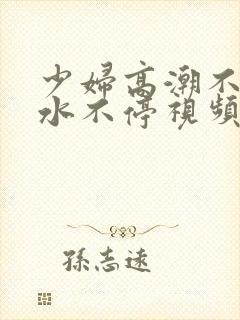 少婦高潮不
水不停視頻
孫志遠